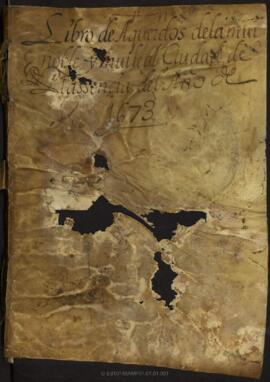 Libro de Aquerdos de la mui
Noble y mui leal Ciudad de
Plassencia del Año de
1673